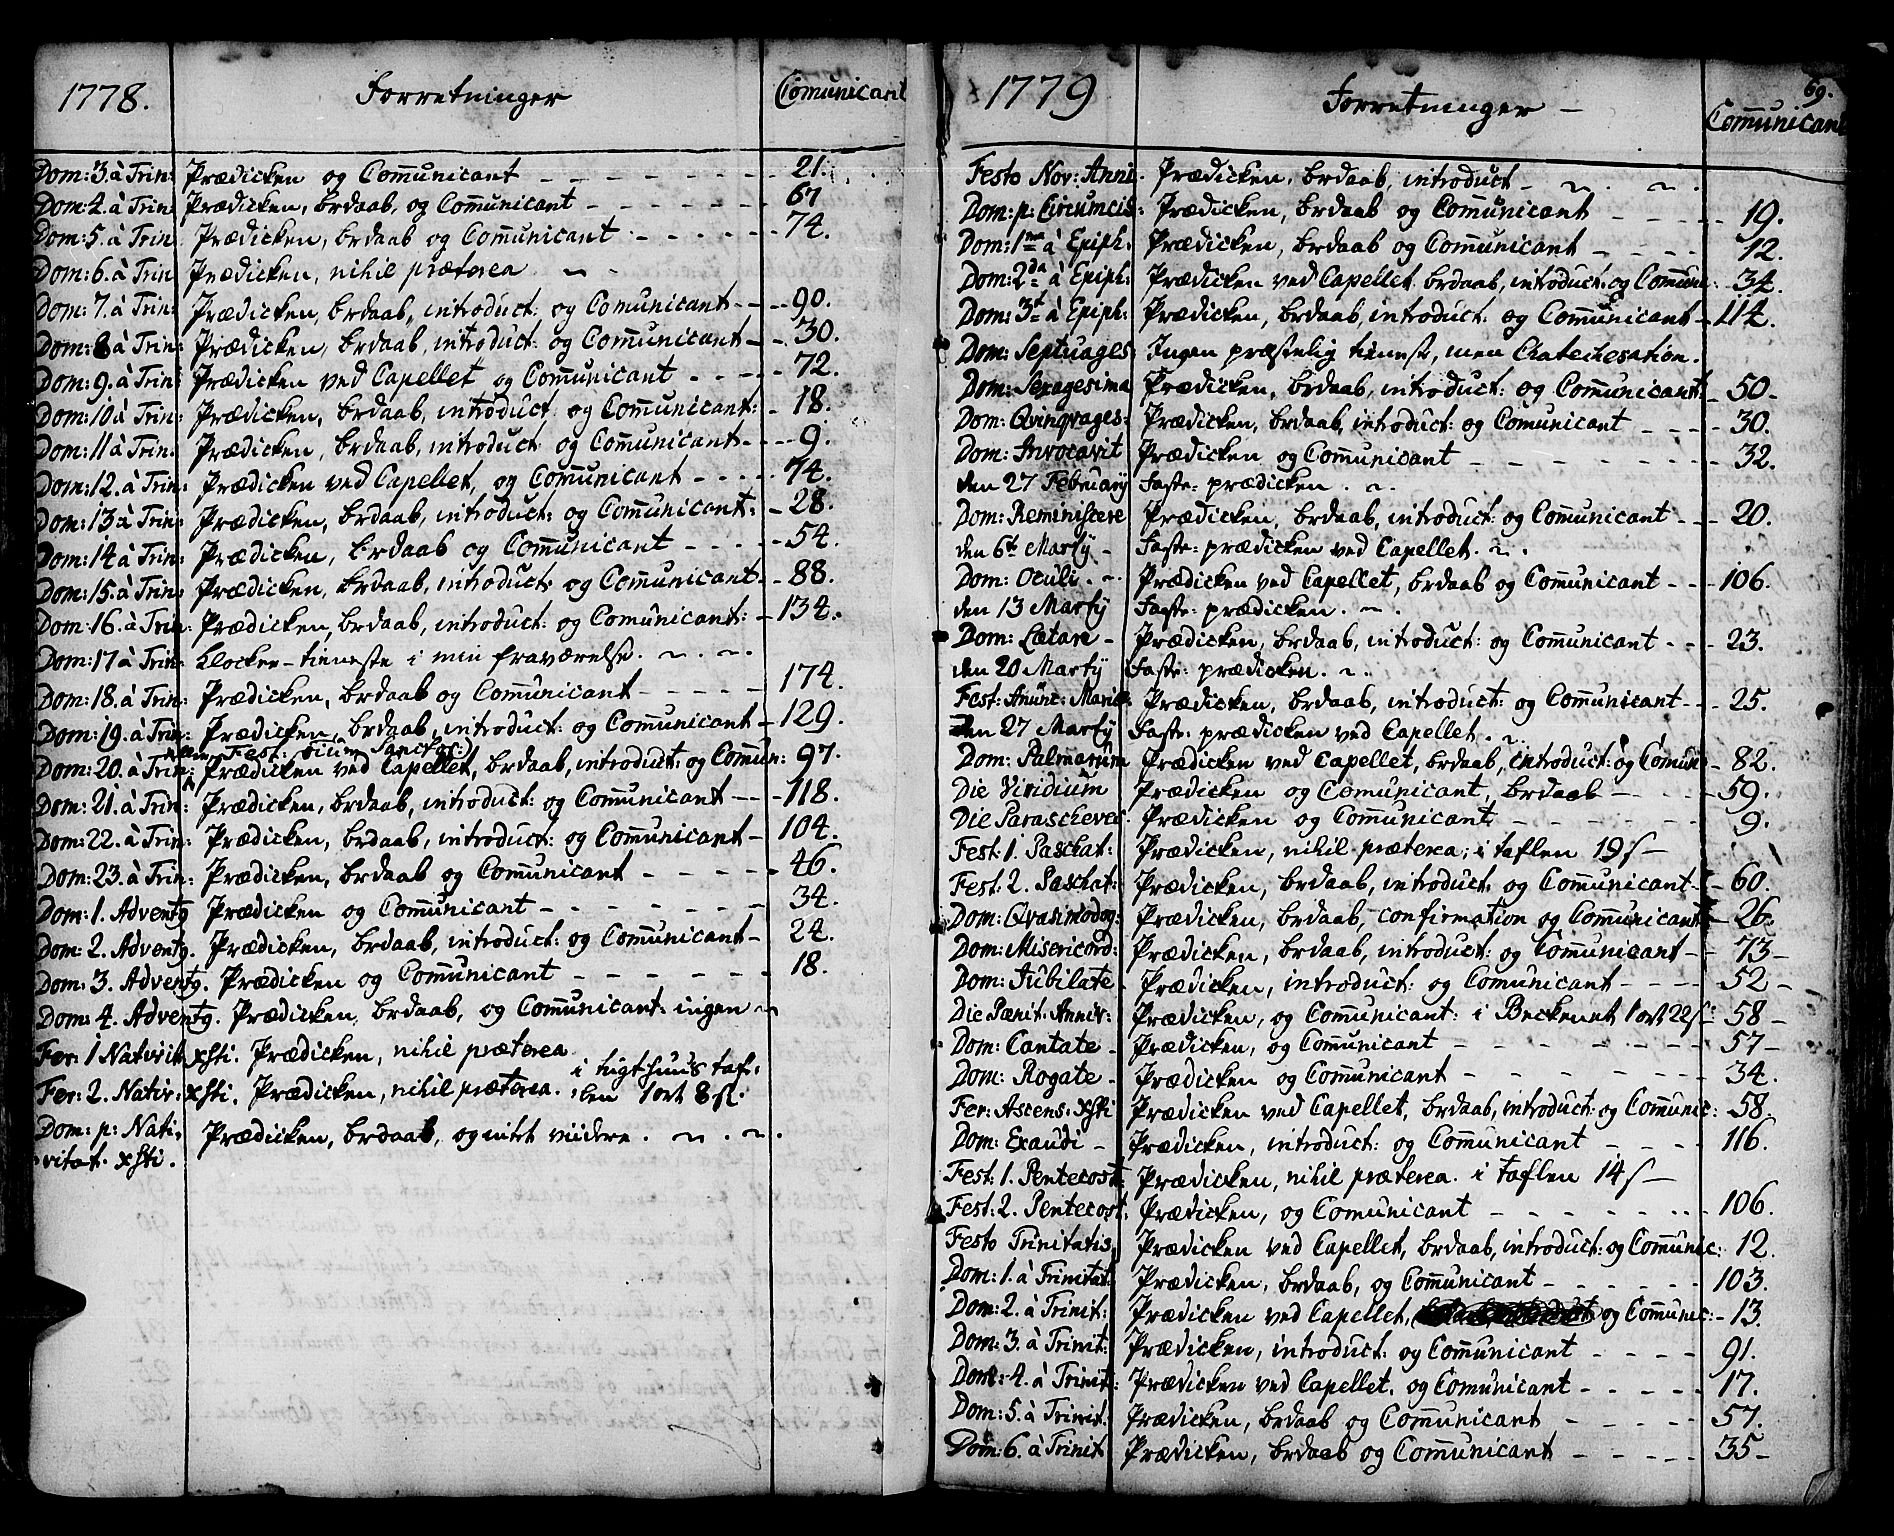 1778. Forretninger Com̅unicant
Dom: 3 à Trin: Prædicken og Com̅unicant 21.
Dom: 4. à Trin: Prædicken, brdaab, og Com̅unicant 67
Dom: 5. à Trin. Prædicken, brdaab og Com̅unicant 74.
Dom: 6. à Trin: Prædicken, nihil præterea
Dom: 7. à Trin: Prædicken, brdaab, introduct: og Comunicant 90.
Dom: 8 à Trin: Prædicken, brdaab, introduct: og Com̅unicant 30.
Dom: 9. à Trin: Prædicken ved Capellet og Com̅unicant 72.
Dom: 10 à Trin: Prædicken, brdaab, introduct: og Com̅unicant: 18.
Dom: 11 à Trin: Prædicken, brdaab, introduct: og Com̅unicant 9.
Dom: 12. à Trin: Prædicken ved Capellet, og Com̅unicant 74.
Dom: 13 à Trin: Prædicken, brdaab, introduct: og Com̅unicant: 28.
Dom: 14 à Trin: Prædicken, brdaab og Com̅unicant 54.
Dom: 15. à Trin: Prædicken, brdaab, introduct: og Com̅unicant 88.
Dom: 16. à Trin: Prædicken, brdaab, introduct: og Com̅unicant: 134.
Dom: 17 à Trin: klocker-tieneste i min fraværelse.
Dom: 18. à Trin: Prædicken, brdaab og Com̅unicant 174.
Dom: 19. à Trin: Prædicken, brdaab, introduct: og Com̅unicant 129.
Fest: Sanctor:
Dom: 20. à Trin: Prædicken ved Capellet, brdaab, introduct: og Com̅un: 97.
Dom: 21. à Trin: Prædicken, brdaab, introduct: og Com̅unicant 118.
Dom: 22. à Trin: Prædicken, brdaab, introduct: og Com̅unicant 104.
Dom: 23. à Trin: Prædicken, brdaab og Com̅unicant 46.
Dom: 1. Advent9 Prædicken og Com̅unicant 34.
Dom: 2. Advent9. Prædicken, brdaab, introduct: og Com̅unicant 24.
Dom: 3. Advent9. Prædicken og Com̅unicant 18.
Dom: 4. Advent9. Prædicken, brdaab, og Com̅unicant: ingen
Fer: 1 Nativit: xsti. Prædicken, nihil præterea
Fer: 2. Nativ: xsti. Prædicken, nihil præterea. i tugthuus taf-
len 1 ort 8 s.
Dom: p: Nati- Prædicken, brdaab, og intet viidere.
vitat. xsti.
69.
1779 Forretninger Com̅unicant
Festo Nov: Anni. Prædicken, brdaab, introduct
Dom: p: Circumcis: Prædicken, brdaab og Com̅unicant 19.
Dom: 1ma à Epiph: Prædicken, brdaab og Com̅unicant 12.
Dom: 2da à Epiph: Prædicken ved Capellet brdaab, introduct: og Com̅un: 34.
Dom: 3t à Epiph: Prædicken, brdaab, introduct: og Com̅unicant 114.
Dom: Septuages: Ingen præstelig tieneste, men Chatechesation.
Dom: Sexagesima Prædicken, brdaab, introduct: og Com̅unicant: 50
Dom: Qvinqvages: Prædicken, brdaab, introduct: og Comunicant 30.
Dom: Invocavit Prædicken og Com̅unicant 32.
den 27 Februarÿ Faste: prædicken.
Dom: Reminiscere Prædicken, brdaab, introduct: og Com̅unicant 20.
den 6t Martÿ Faste: prædicken ved Capellet.
Dom: Oculi. Prædicken ved Capellet, brdaab og Com̅unicant 106.
den 13 Martÿ Faste: prædicken.
Dom: Lætare Prædicken, brdaab, introduct: og Com̅unicant 23.
den 20 Martÿ Faste: prædicken.
Fest: Anunc: Mariæ: Prædicken, brdaab, introduct: og Com̅unicant 25.
den 27 Martÿ Faste: prædicken ved Capellet.
Dom: Palmarum Prædicken ved Capellet, brdaab, introduct: og Com̅uni 82.
Die Viridium Prædicken og Comunicant, brdaab 59.
Die Parascheves Prædicken og Com̅unicant 9.
Fest: 1. Paschat: Prædicken, nihil præterea; i taflen 19 s
Fest: 2. Paschat: Prædicken, brdaab, introduct: og Com̅unicant 60.
Dom: Qvasimodog: Prædicken, brdaab, confirmation og Com̅unicant 26.
Dom: Misericord: Prædicken, brdaab, introduct: og Com̅unicant 73
Dom: Jubilate Prædicken, introduct: og Com̅unicant 52
Die Pænit: Anniv: Prædicken, og Com̅unicant: i Beckenet 1 ort 22 s: 58
Dom: Cantate Prædicken, og Com̅unicant 57
Dom: Rogate Prædicken og Com̅unicant 34.
Fer: Ascens: xsti Prædicken ved Capellet, brdaab, introduct: og Com̅unic: 58.
Dom: Exaudi Prædicken, introduct: og Com̅unicant 116.
Fest: 1. Pentecost: Prædicken, nihil præterea. i taflen 14 s
Fest: 2. Pentecost: Prædicken, og Com̅unicant 106.
Festo Trinitatis, Prædicken ved Capellet, brdaab, introduct: og Com̅unic: 12.
Dom: 1. à Trinitat: Prædicken, brdaab, og Com̅unicant 103.
Dom: 2. à Trinit: Prædicken ved Capellet, og Com̅unic: 13.
Dom: 3. à Trinit: Prædicken, introduct: og Com̅unicant 91.
Dom: 4. à Trinit: Prædicken ved Capellet. og Com̅unicant 17.
Dom: 5. à Trinit. Prædicken, brdaab og Com̅unicant 57.
Dom: 6. à Trinit Prædicken, brdaab og Com̅unicant 35